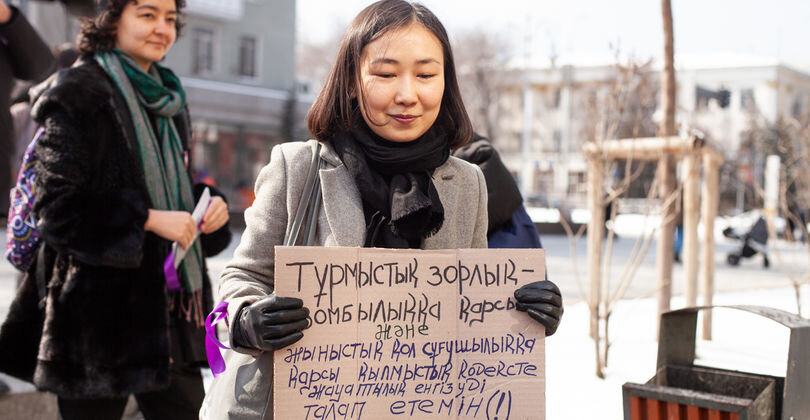 ТұРМЫСТЫҚ ЗОРЛЫҚ-
ЗОМБЫЛЫҚҚА ҚАРСЫ
ЖӘНЕ
ЖЫНЫСТЫҚ ҚОЛ СҰҒУШЫЛЫҚҚА
ҚАРСЫ ҚЫЛМЫСТЫҚ КОДЕКСТЕ
ЖАУАПТЫЛЫҚ ЕНГІЗУДІ
ТАЛАП ЕТЕМІН(!)